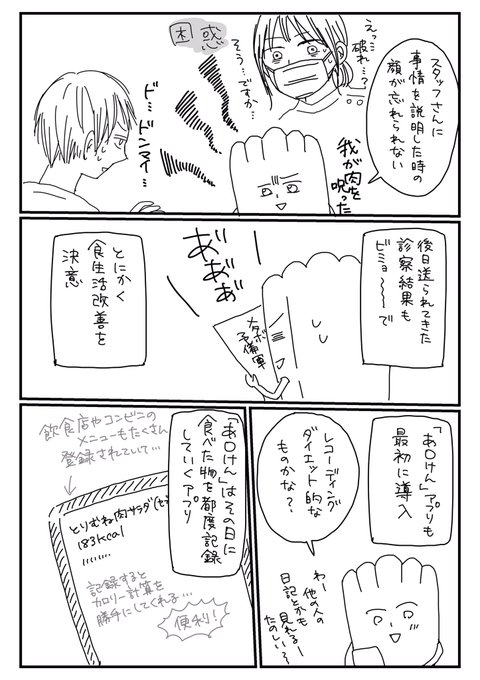 スタッフさんに
事情を説明した時の
顔が忘れられない
えっ…
破れ…?
そう…ですか…
困惑
我が肉を
呪った
ド…
ドンマイ…
後日送られてきた
診察結果も
ビミョ〜〜〜で
あ゛あ゛あ゛
メタボ
予備軍
とにかく
食生活改善を
決意
「あ〇けん」アプリも
最初に導入
レコーディング
ダイエット的な
ものかな?
わー
他の人の
日記とかも
見れるー
たのしい?
「あ〇けん」はその日に
食べた物を都度記録
していくアプリ
飲食店やコンビニの
メニューもたくさん
登録されていて…
とりむね肉サラダ
183Kcal
………
記録すると
カロリー計算を
勝手にしてくれる…
便利!